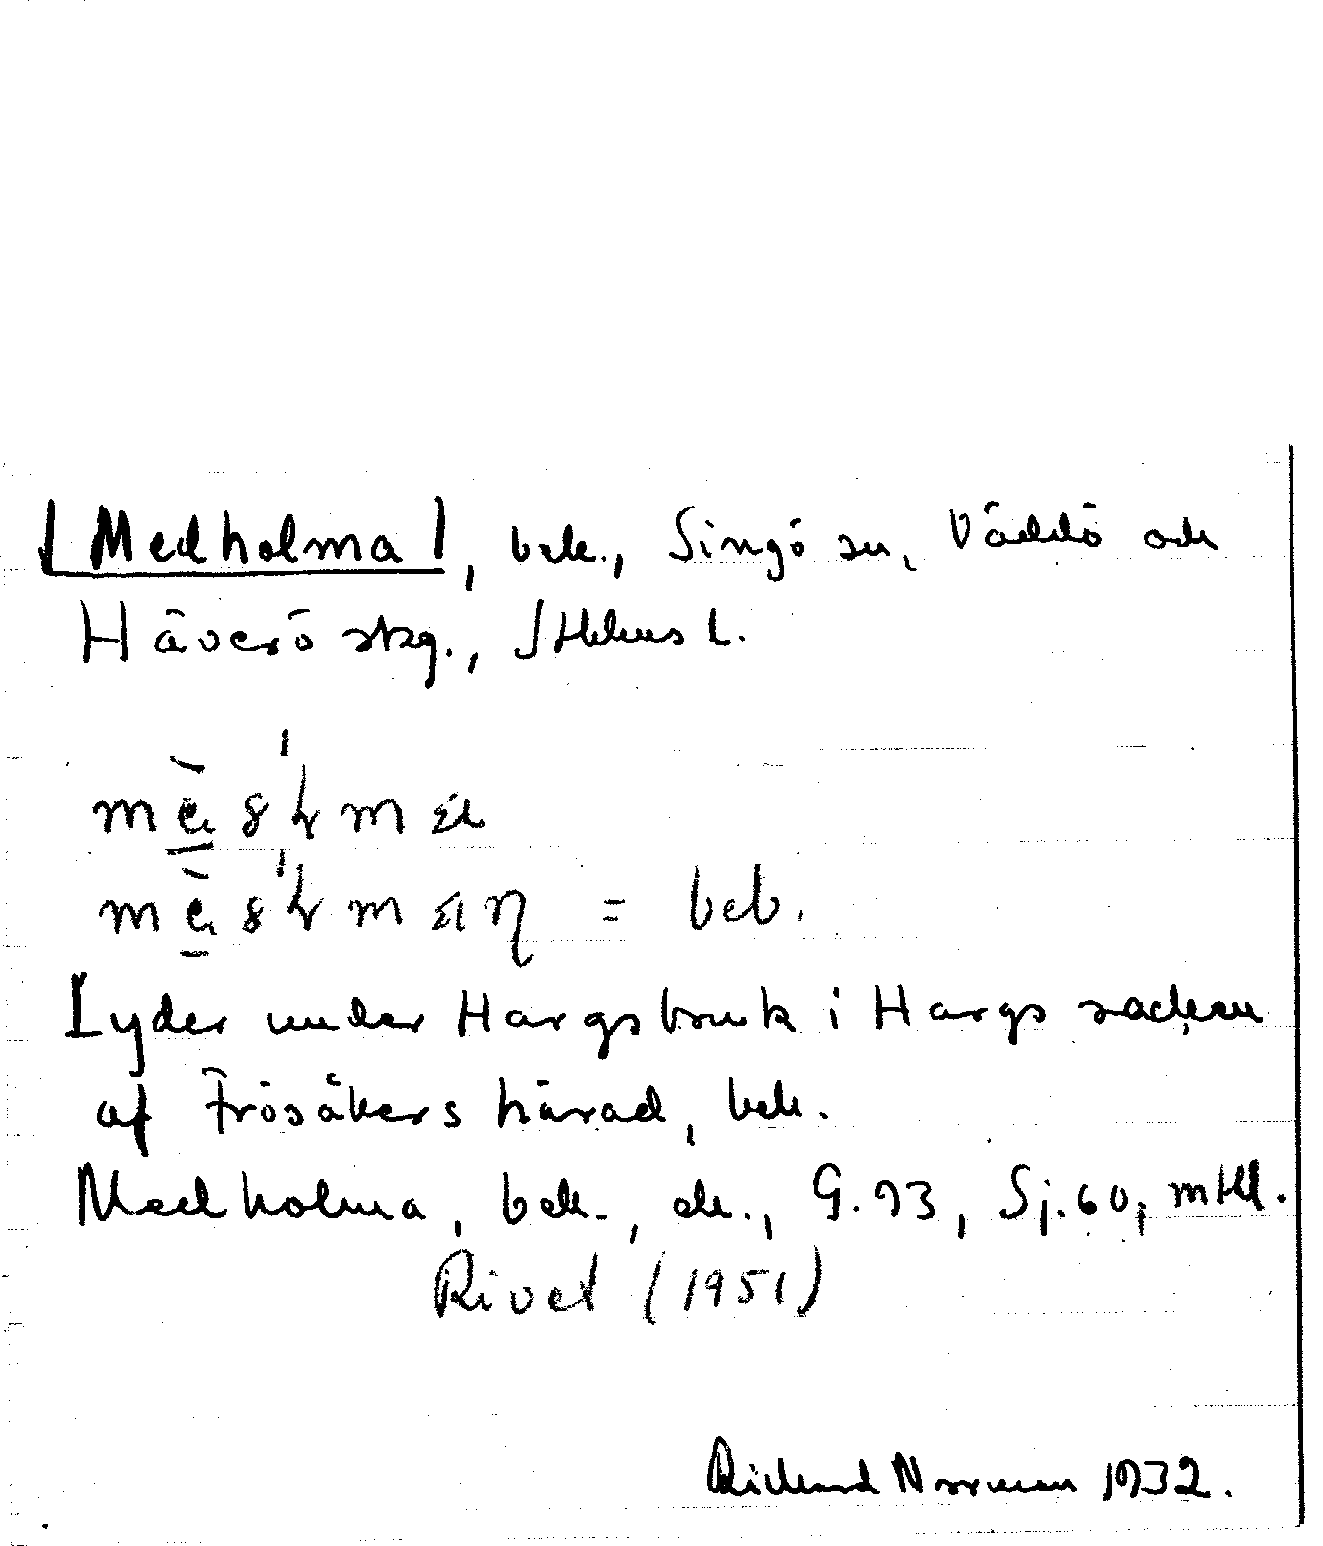 [Medholma], beb., Singö sn, Väddö och
Häverö skg., Sthlms l.
= beb.
Lyder under Hargsbruk i Hargs socken
af Frösåkers härad, beb.
Medholma, beb., ek., G. 93, Sj. 60, mtl.
Rivet (1951)
Rickard Norrman 1932.